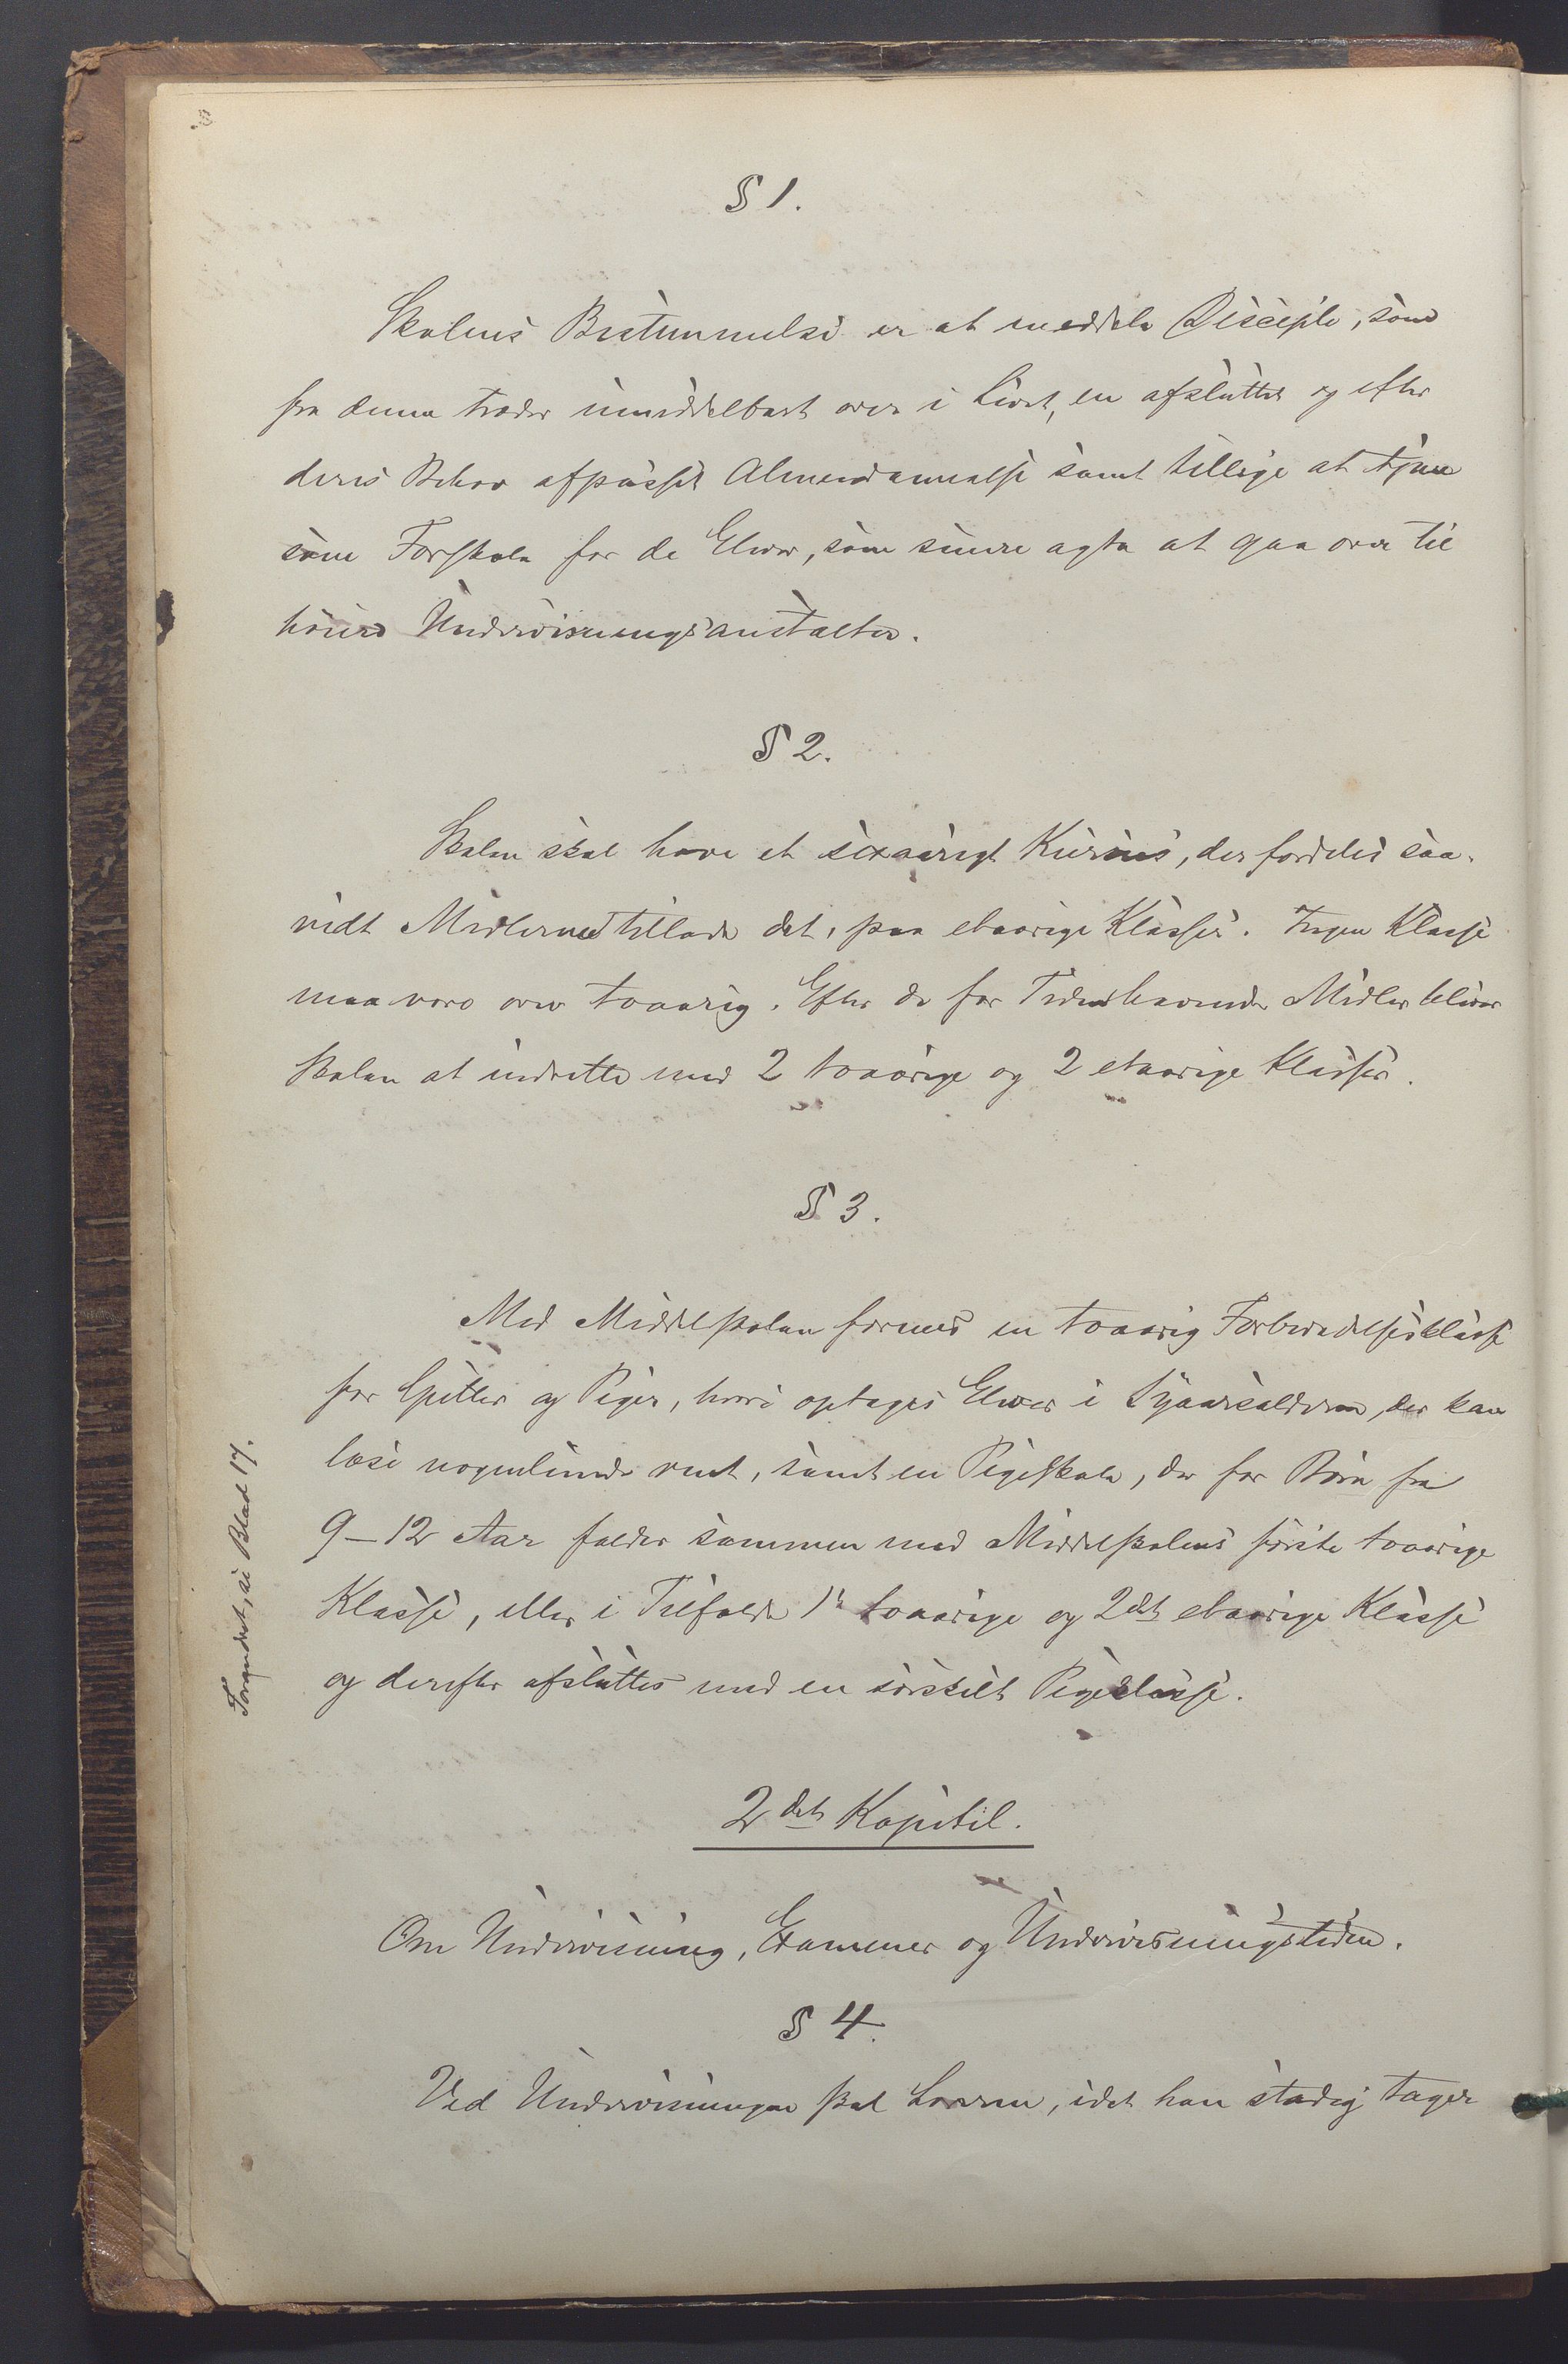 § 1.
Skolens Bestemmelse er at meddele Disciple, som
fra denne træder umiddelbart over i Livet, en afsluttet og efter
deres Behov afpasset Almendannelse samt tillige at tjene
som Forskole for de Elever, som senere agte at gaa over til
høiere Undervisningsanstalter.
§ 2.
Skolen skal have et sexaarigt Kursus, der fordeles saa-
vidt Midlerne tillade det, paa etaarige Klasser. Ingen Klasse
maa være over toaarig. Efter de for Tiden havende Midler bliver
Skolen at indrette med 2 toaarige og 2 etaarige Klasser.
§ 3.
Med Middelskolen forenes en toaarig Forberedelsesklasse
for Gutter og Piger, hvori optages Elever i Syaarsalderen, der kan
læse nogenlunde rent, samt en Pigeskole, der for Børn fra
9–12 Aar falder sammen med Middelskolens første toaarige
Klasse, eller i Tilfælde 1ste toaarige og 2det etaarige Klasse
og derefter afsluttes med en særskilt Pigeklasse.
Forandret, se Blad 17.
2det Kapitel.
Om Undervisning, Examener og Undervisningstiden.
§ 4.
Ved Undervisningen skal Læreren, idet han stadig tager